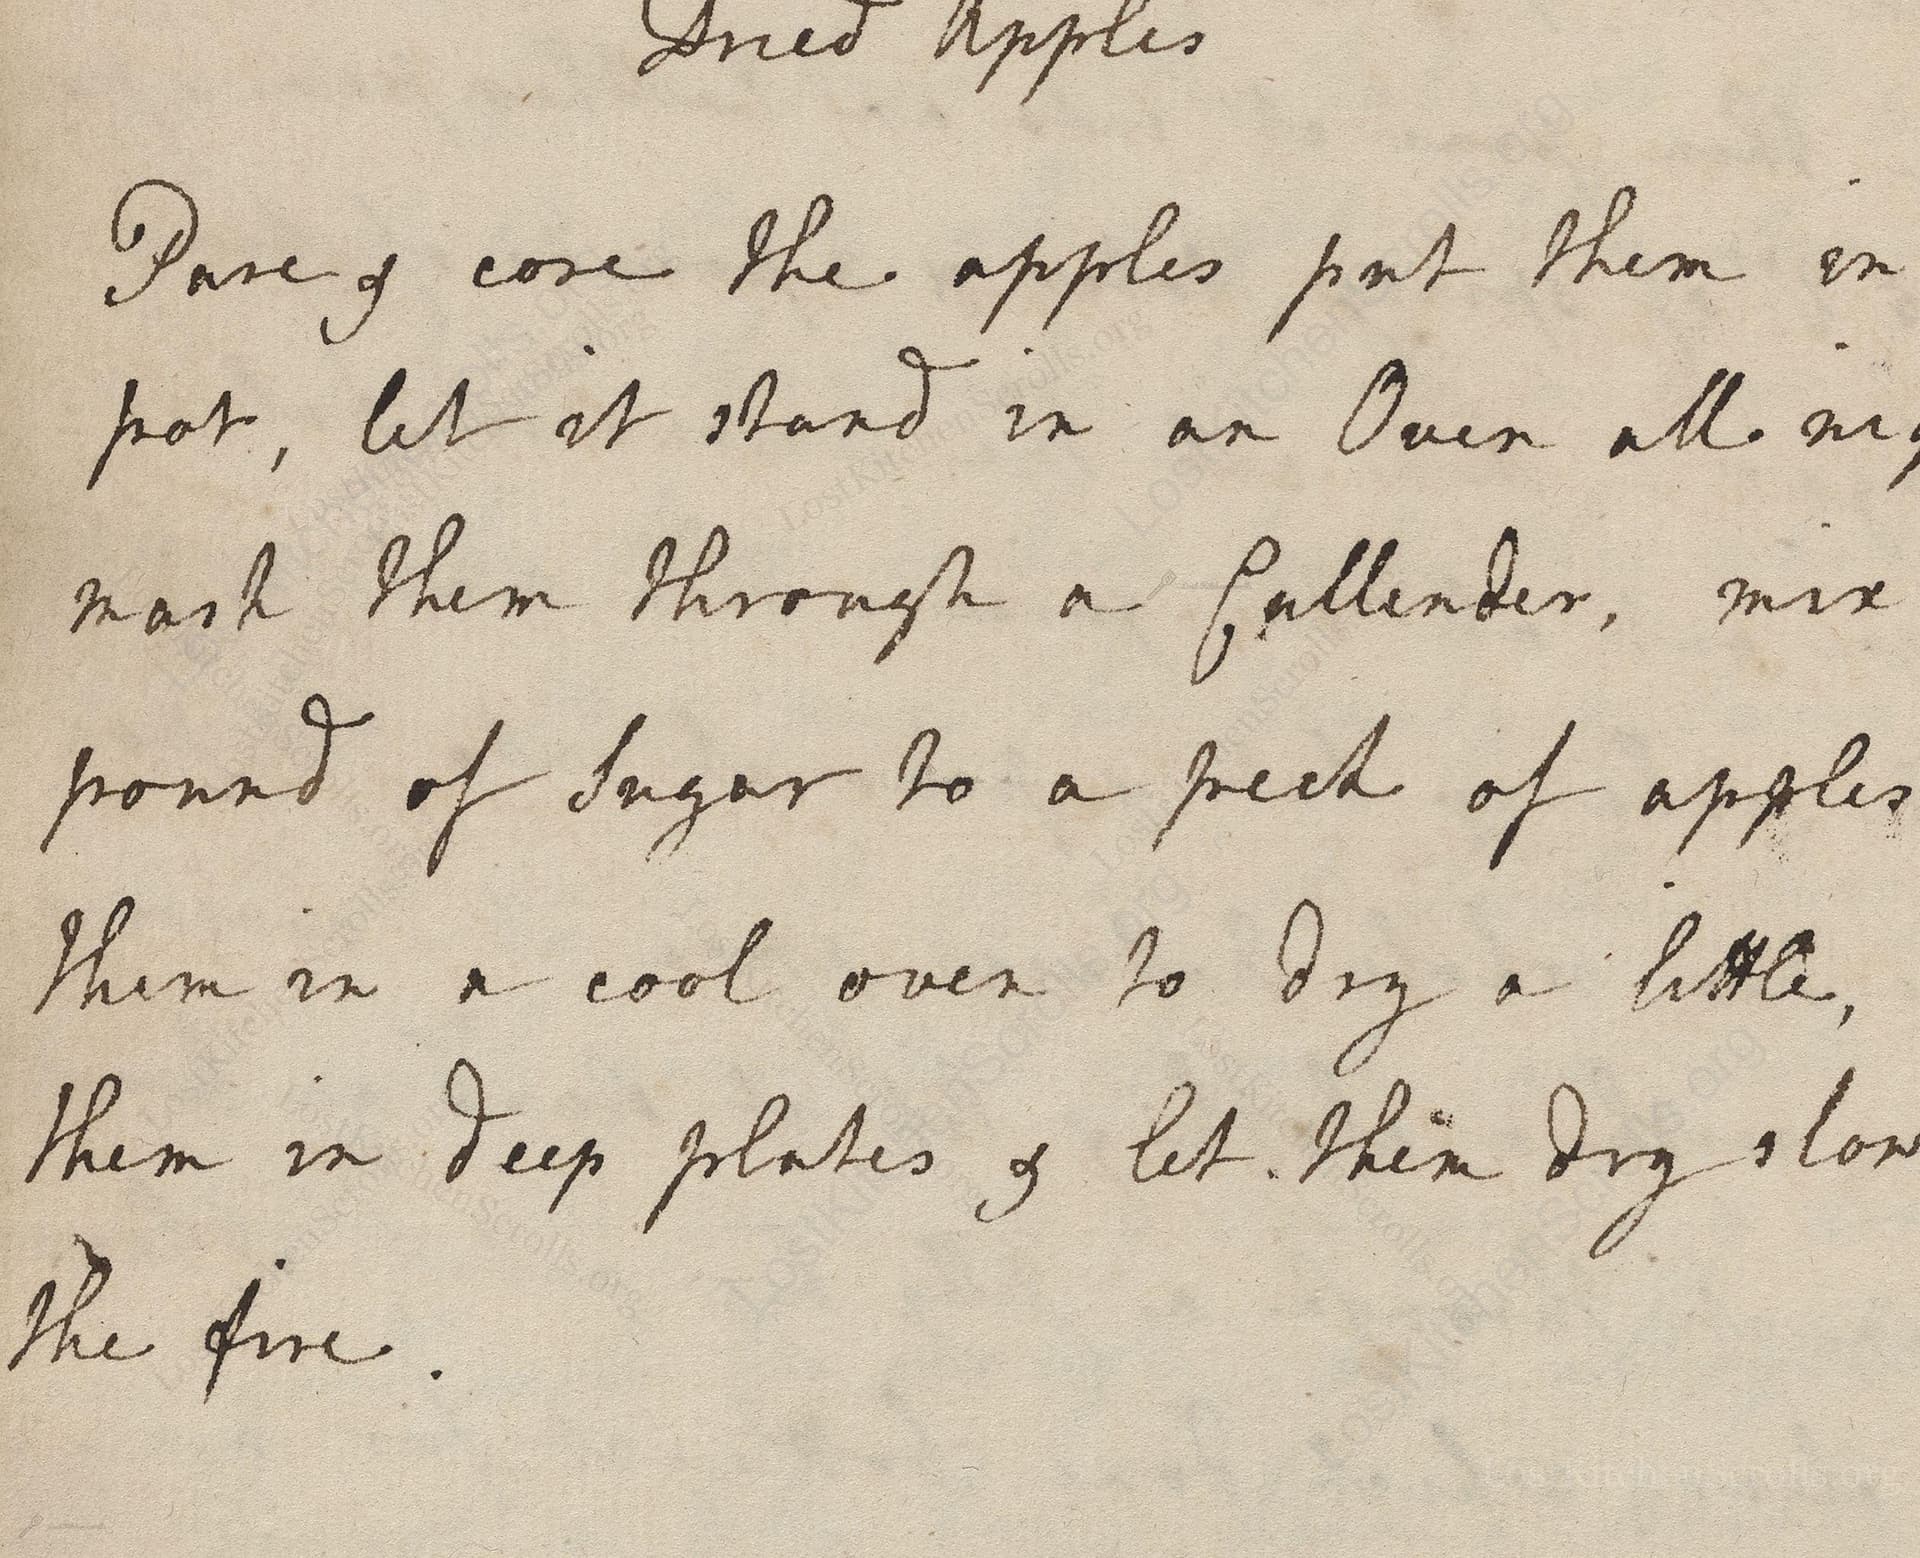 Dried Apples
Pare & core the apples put them in
pot, let it stand in an Oven all
mash them through a Cullender, mix
pound of Sugar to a peck of apples
them in a cool oven to dry a little,
them in deep plates & let them dry slow
the fire.
LostKitchenScrolls.org